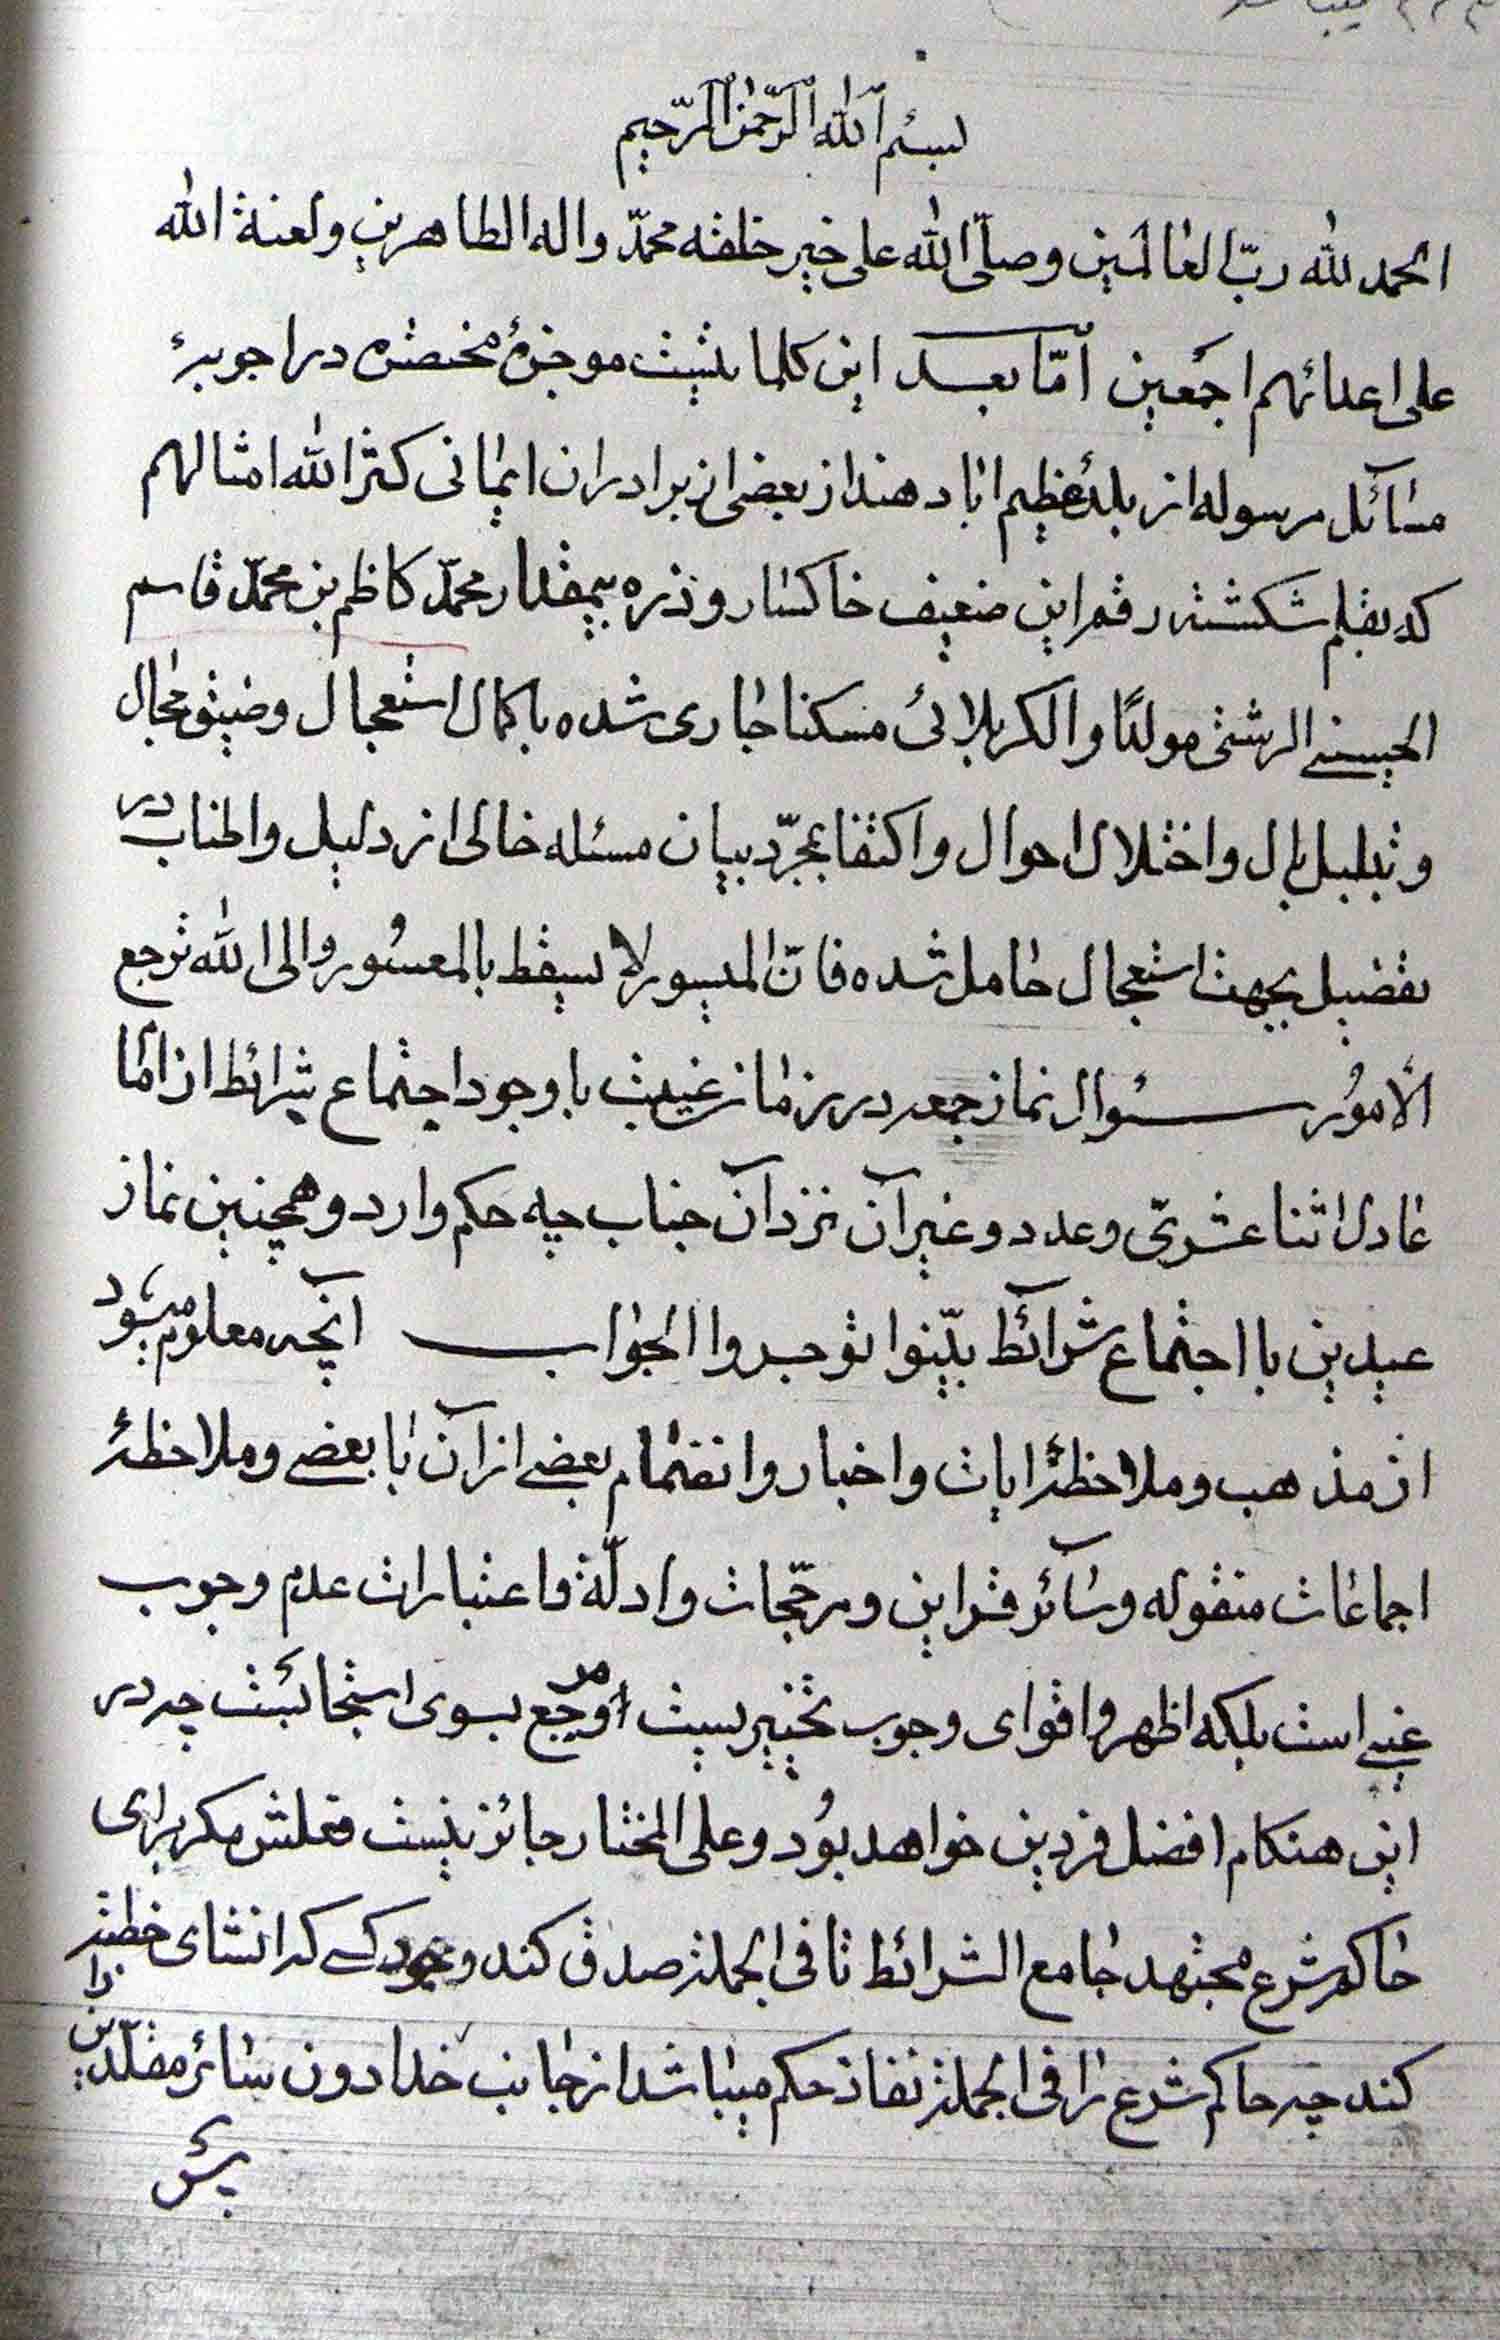 بسم الله الرحمن الرحيم
الحمد لله ربّ العالمين وصلّى الله على خير خلقه محمّد واله الطاهرين ولعنة الله
على اعدائهم اجمعين امّا بعد این کلماتیست موجزهٔ مختصره در اجوبهٔ
مسائل مرسوله از بلدهٔ عظیم اباد هند از بعضی از برادران ایمانی کثر الله امثالهم
که بقلم شکسته رقم این ضعیف خاکسار و ذره بیمقدار محمّد کاظم بن محمّد قاسم
الحسینی الرشتی مولدًا والکربلائی مسکنا جاری شده با کمال استعجال وضیق مجال
وتبلبل بال واختلال احوال واکتفا بمجرّد بیان مسئله خالی از دلیل واطناب در
تفصیل بجهت استعجال حامل شده فانّ المیسور لا یسقط بالمعسور والی الله ترجع
الأمور سئوال نماز جمعه در زمان غیبت با وجود اجتماع شرائط از امام
عادل اثنا عشریّ وعدد وغیر آن نزد آن جناب چه حکم وارد وهمچنین نماز
عیدین با اجتماع شرائط بیّنوا توجروا الجواب آنچه معلوم میشود
از مذهب وملاحظهٔ ایات واخبار وانضمام بعضی از آن با بعضی وملاحظهٔ
اجماعات منقوله وسآئر قراین ومرجّحات وادلّة واعتبارات عدم وجوب
عینی است بلکه اظهر واقوای وجوب تخییریست ومرجع بسوی استحبابست چه در
این هنکام افضل فردین خواهد بود وعلی المختار جائز نیست فعلش مکر برای
حاکم شرع مجتهد جامع الشرائط تا فی الجملة صدق کند وجود کسی که انشای خطبه را
کند چه حاکم شرع را فی الجملة نفاذ حکم میباشد از جانب خدا دون سائر مقلّدین
پس